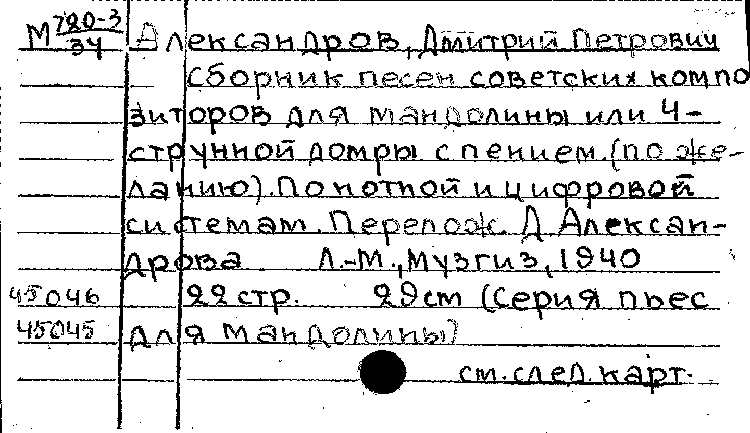 М 720-3/34 Александров, Дмитрий Петрович
Сборник песен советских компо
зиторов для мандолины или 4-
струнной домры с пением (по же-
ланию). По нотной и цифровой
системам. Перелож. Д. Алексан-
дрова Л.-М., Музгиз, 1940
45046 22 стр. 29 см (Серия пьес
45045 для мандолины)
см. след. карт.